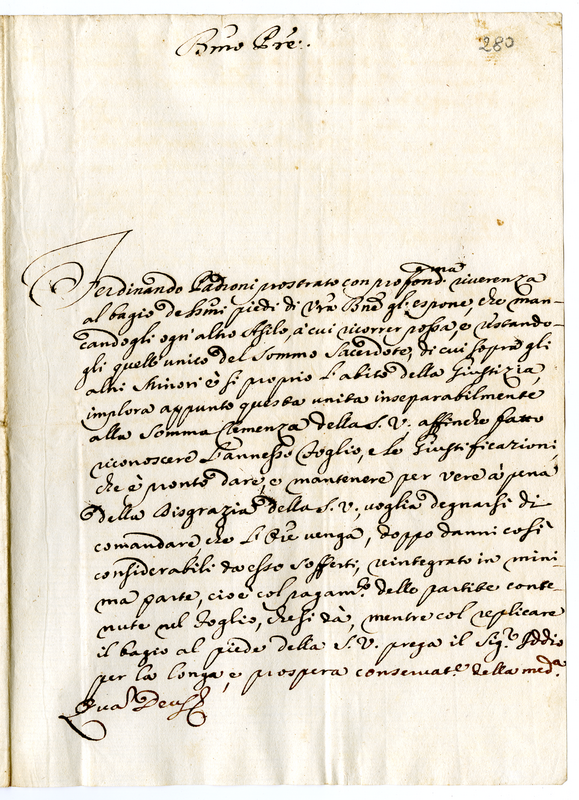 Bmo Pre:.
280
Ferdinando Padroni prostrato con profond.ma riverenza
al bagio de SSmi piedi di Vra Bne gli espone, che man-
candogli ogn' altro Asilo, à cui ricorrer possa, e restando-
gli quello unico del Sommo Sacerdote, di cui sopra gli
altri Minori è si proprio l'abito della Giustizia,
implora appunto questa unita inseparabilmente
alla Somma Clemenza della S. V. affinche fatto
riconoscere l'annesso foglio, e le Giustificazioni,
che è pronto dare, e mantenere per vere à pena
della Disgrazia della S. V., voglia degnarsi di
comandare, che l'Ore venga, doppo danni così
considerabili da esso sofferti, reintegrato in mini-
ma parte, cioè col pagam.to delle partite conte-
nute nel foglio, che si dà, mentre col replicare
il bagio al piede della S. V. prega il Sig.re Iddio
per la longa, e prospera conservat.e della med.a
Quam Deus